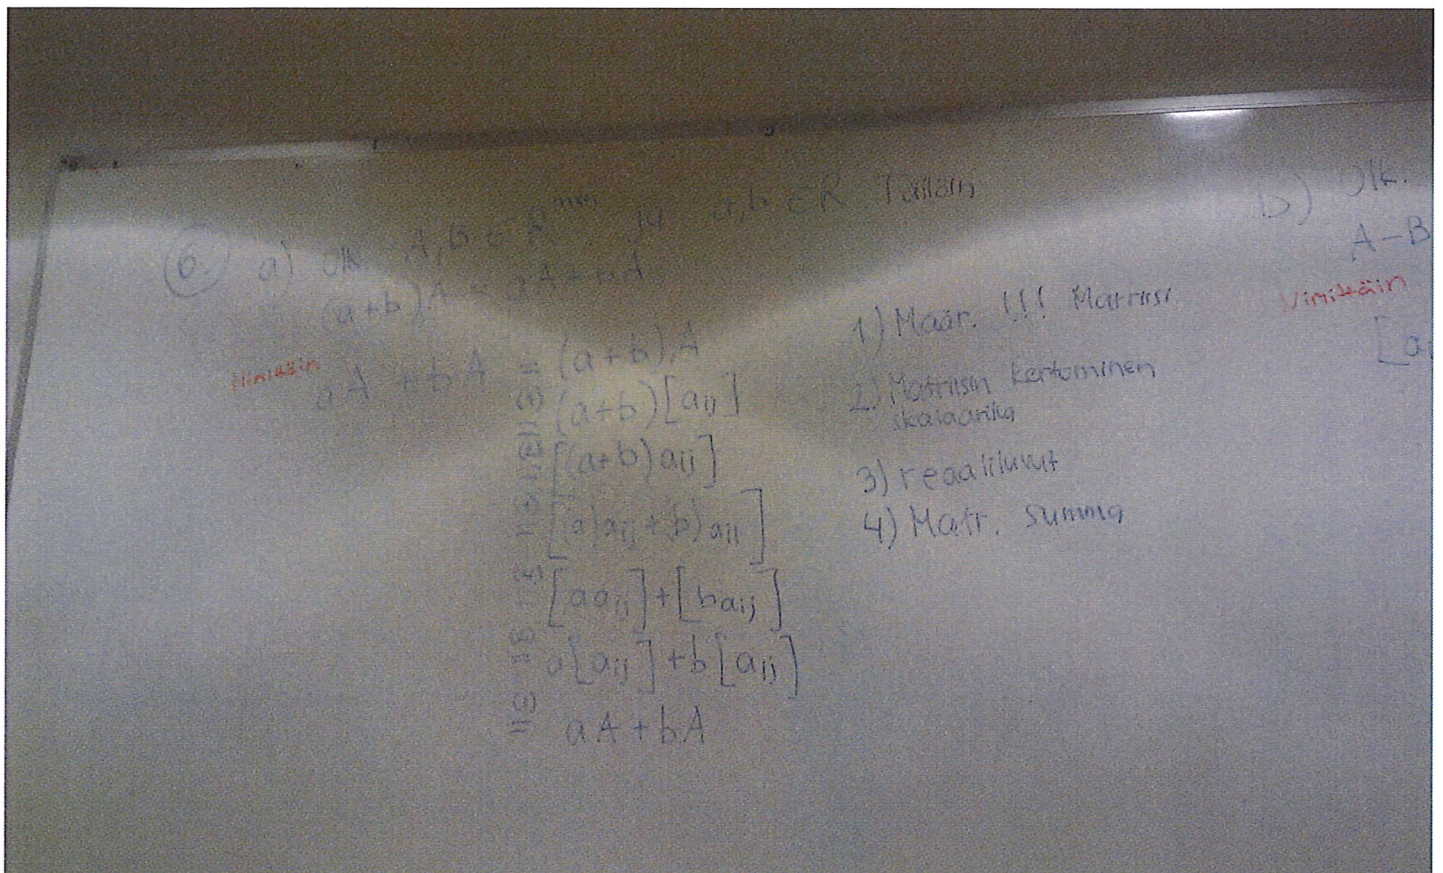 6. a) Olk. A, B ∈ R^nxn ja a, b ∈ R. Tällöin
(a+b)A = aA + bA
Nimittäin
aA + bA = (a+b)A
(a+b)[aij]
[(a+b)aij]
[(a)aij + b)aij]
[aaij] + [baij]
a[aij] + b[aij]
aA + bA
1) Määr. !!! Matriisi
2) Matriisin kertominen
skalaarilla
3) reaaliluvut
4) Matr. summa
b) Olk.
A-B
Nimittäin
[a